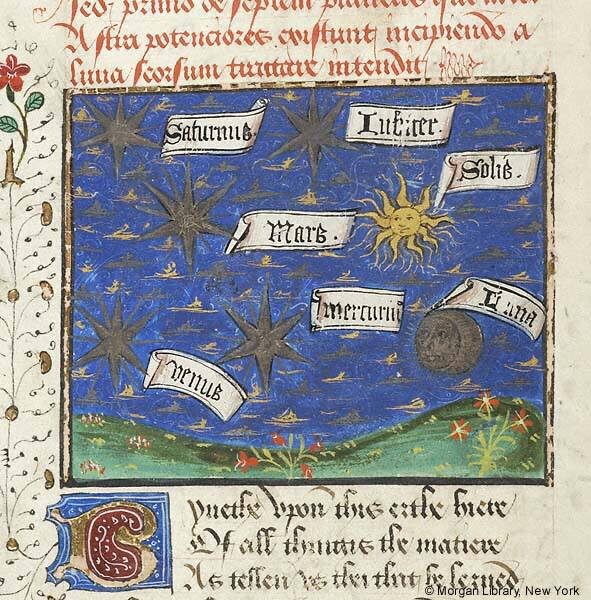 Sed primo de septem planetis que inter
Astra potenciores existunt incipiendo a
luna seorsum tractare intendit
Saturnus.
Iubiter.
Solis.
Mars.
mercurius
Luna
venus
Bynethe vpon this erthe hiere
Of all thingis the matiere
As tellen vs thei that be lerned
© Morgan Library, New York